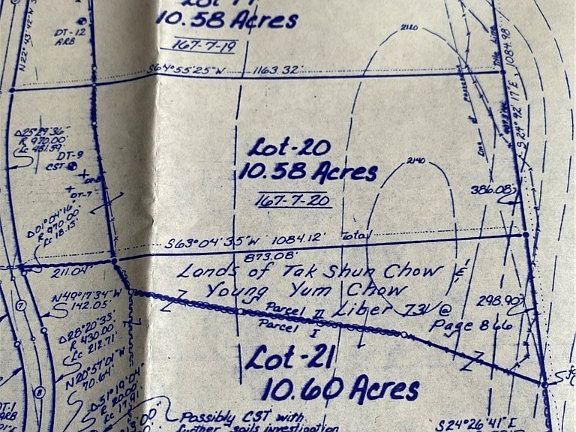 10.58 Acres
167-7-19
DT-12
ARB
2120
S64°55'25"W 1163.32'
1084.98'
Δ25°29'36"
R 970.00'
Lc 431.59'
DT-9
CST
DT-7
Lot-20
10.58 Acres
167-7-20
2140
386.08'
Δ01°04'16"
R 970.00'
Lc 18.13'
S63°04'35"W 1084.12' Total
211.04'
873.08'
Lands of Tak Shun Chow &
Young Yum Chow
Liber 731 @
Page 866
298.90'
N49°17'34"W
142.05'
Parcel II
Parcel I
Δ28°20'35"
R 430.00'
Lc 212.71'
Lot-21
10.60 Acres
N20°57'01"W
70.64'
Possibly CST with
further soils investigation
S24°26'41"E
ARB